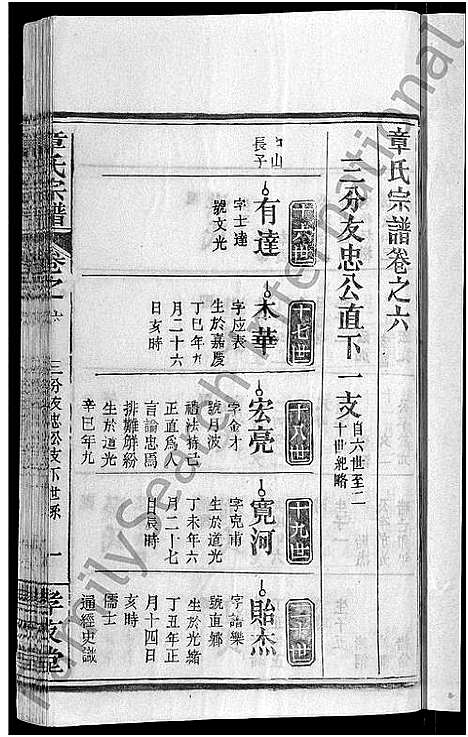 章氏宗譜卷之六
三分友忠公直下一支
自六世至二
十世紀略
十六世
有達
山
長子
字士達
號文光
十七世
木華
字应表
生於嘉慶
丁巳年九
月二十六
日亥時
十八世
宏亮
字金才
號月波
禮法持己
正直爲人
言論忠爲
排難觧紛
生於道光
辛巳年九
十九世
寬河
字克甫
生於道光
丁未年六
月二十七
日辰時
二十世
貽杰
字詣樂
號直鄉
生於光緒
丁丑年正
月十四日
亥時
儒士
通經史識
章氏宗譜
卷之六
三分友忠公支下世系
一
孝友堂
FamilySearch International